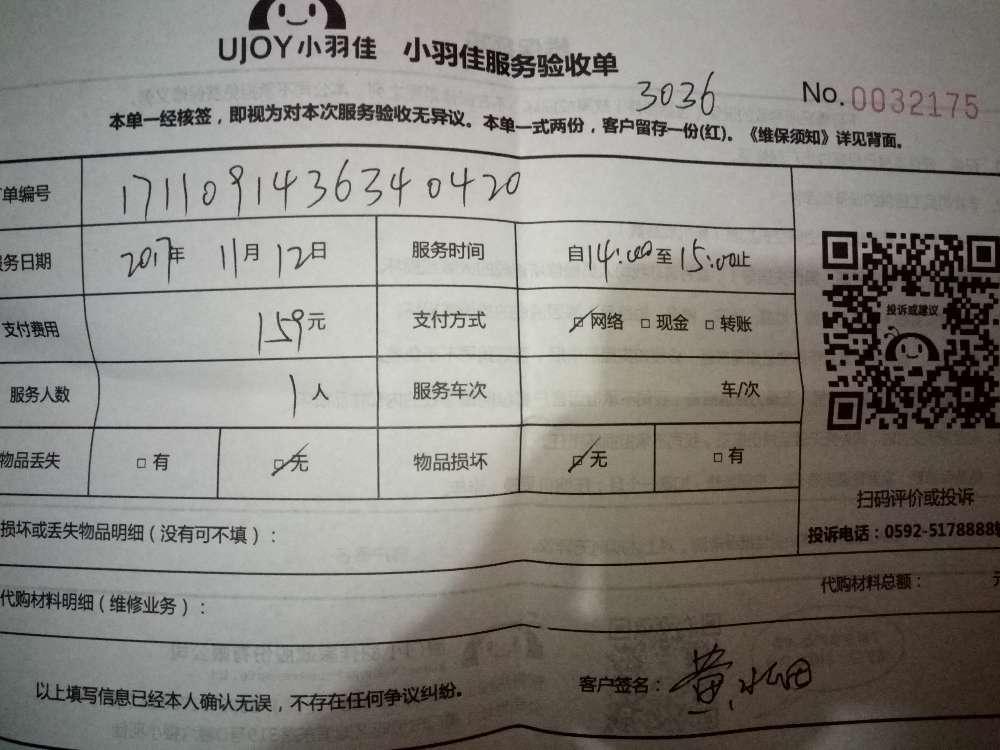 UJOY小羽佳 小羽佳服务验收单
3036 No.0032175
本单一经核签，即视为对本次服务验收无异议。本单一式两份，客户留存一份(红)。《维保须知》详见背面。
单编号 1711091436340420
服务日期 2017年 11月 12日 服务时间 自14:00至15:00止
支付费用 159元 支付方式 □网络 □现金 □转账
投诉或建议
服务人数 1人 服务车次 车/次
物品丢失 □有 □无 物品损坏 □无 □有
扫码评价或投诉
损坏或丢失物品明细（没有可不填）： 投诉电话：0592-5178888
代购材料明细（维修业务）： 代购材料总额：
以上填写信息已经本人确认无误，不存在任何争议纠纷。 客户签名：黄